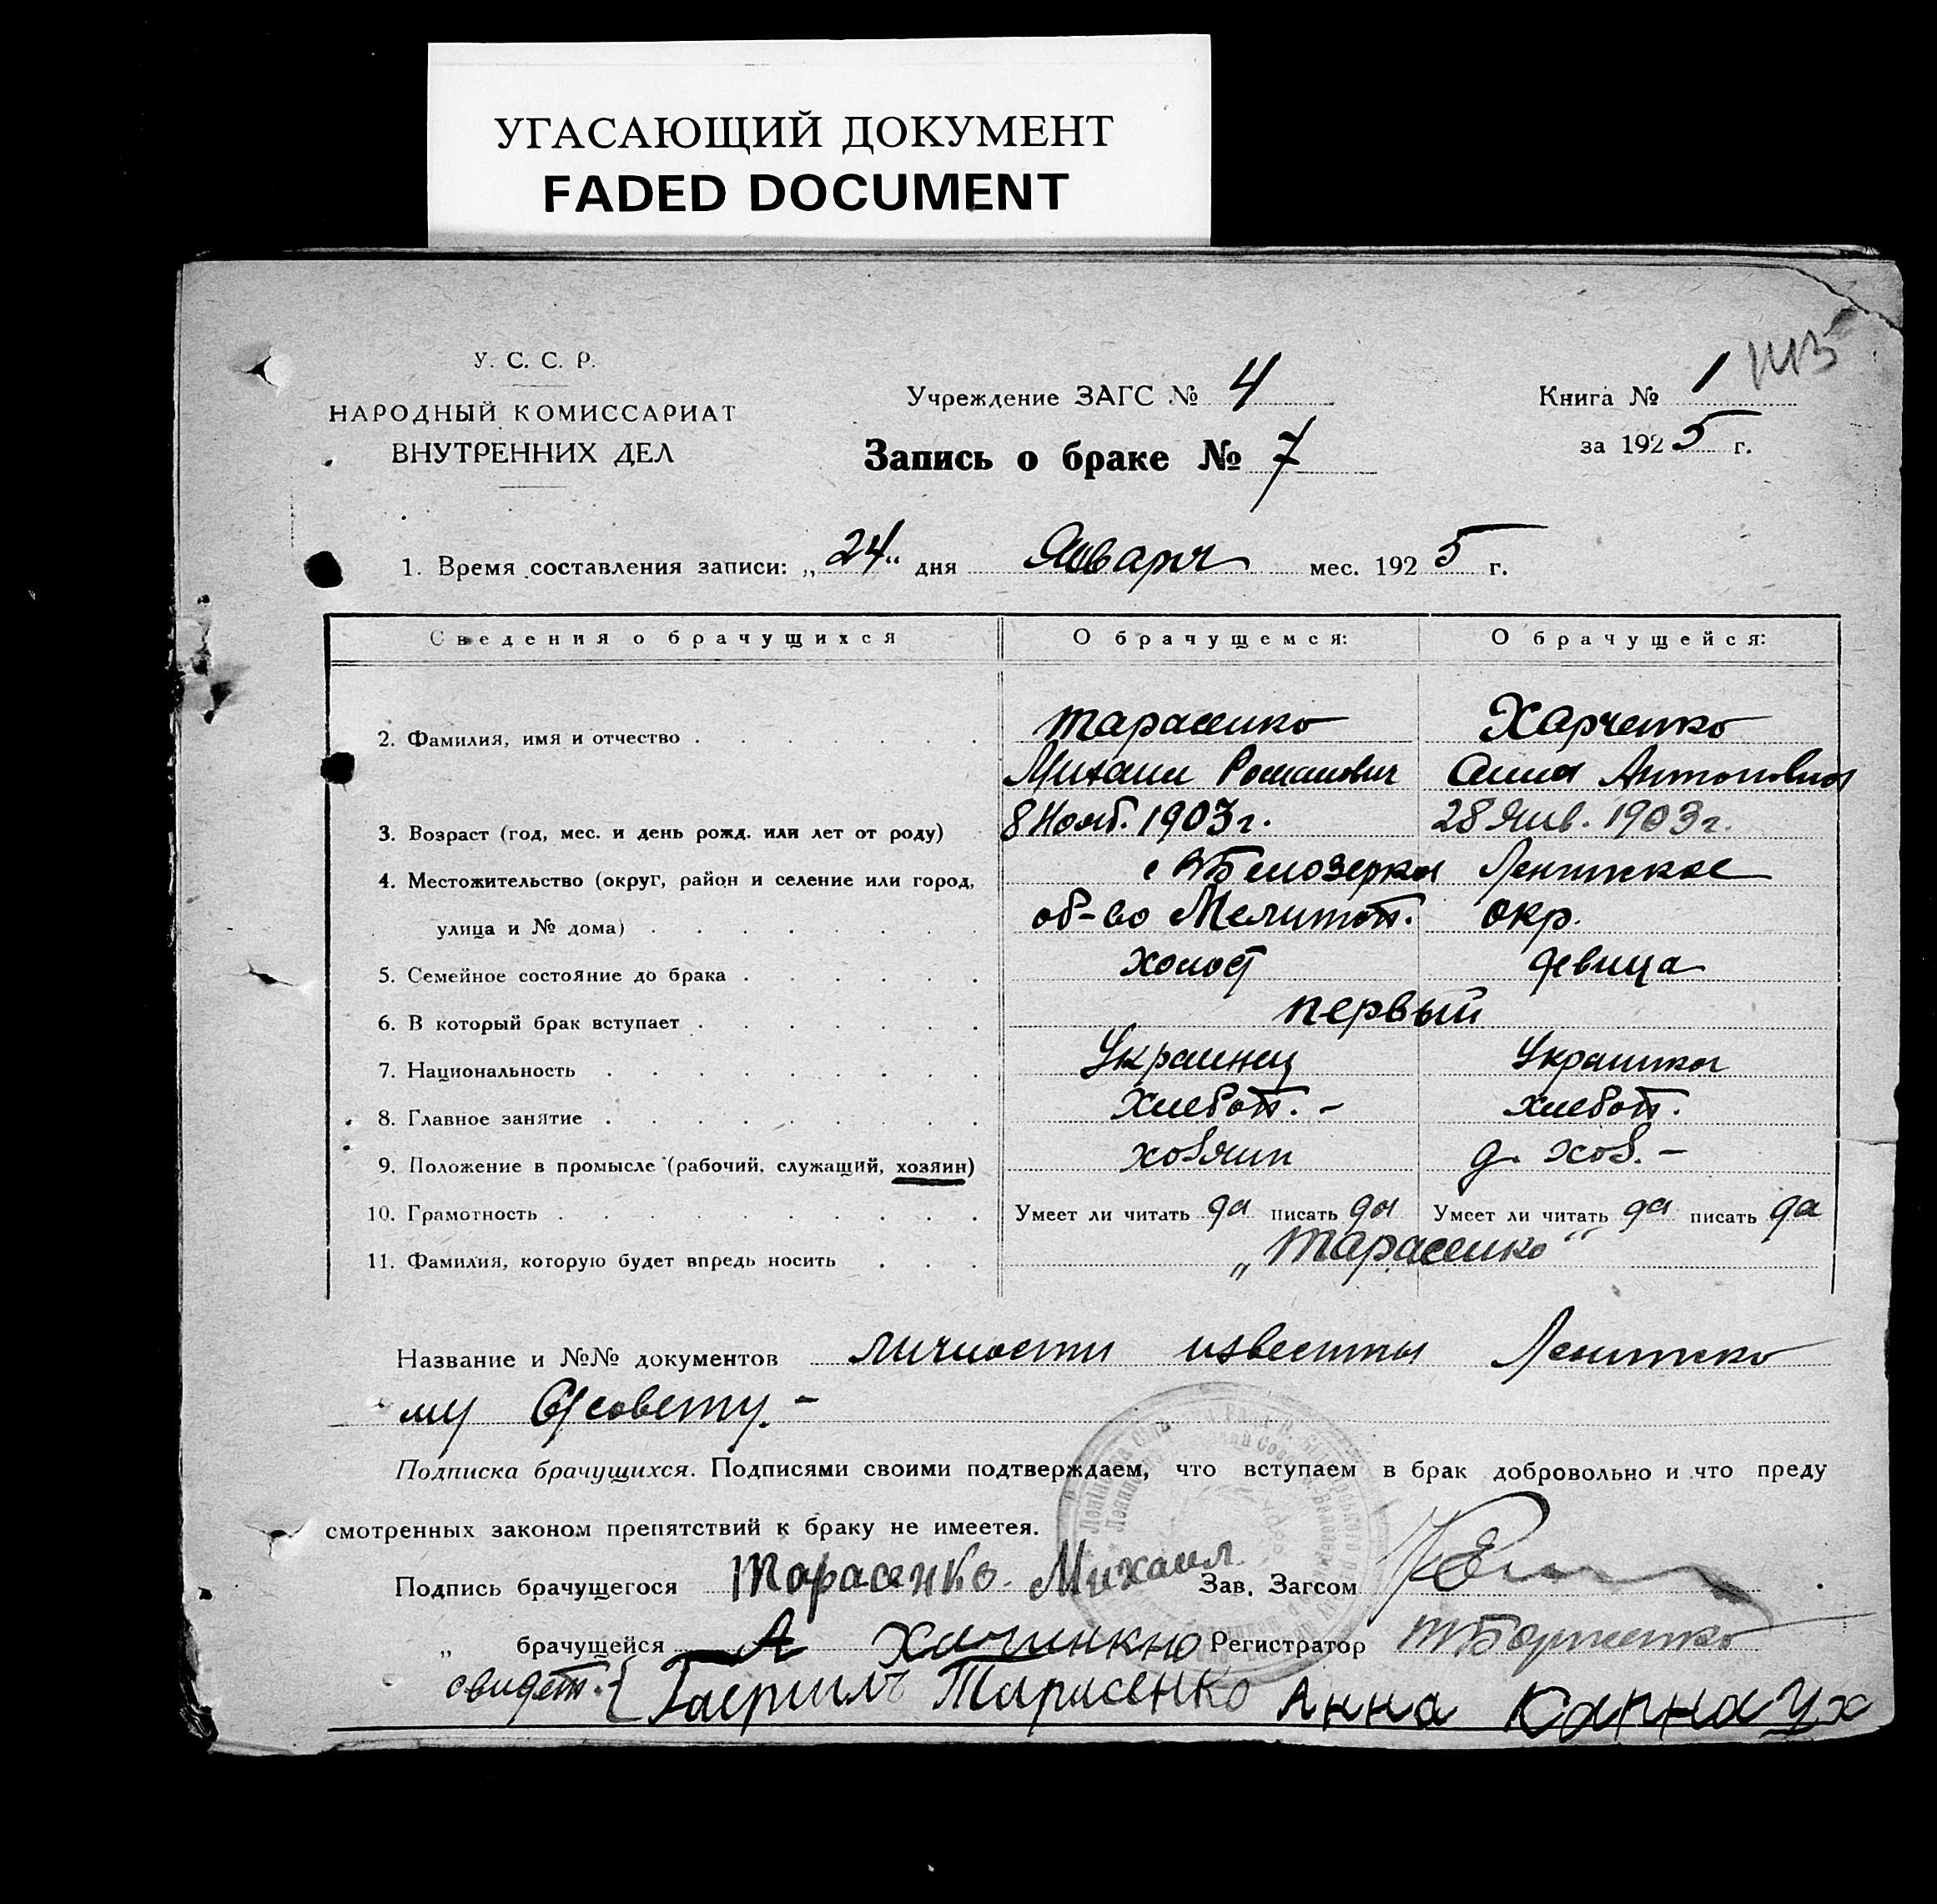 УГАСАЮЩИЙ ДОКУМЕНТ
FADED DOCUMENT
У. С. С. Р.
НАРОДНЫЙ КОМИССАРИАТ
ВНУТРЕННИХ ДЕЛ
Учреждение ЗАГС № 4
Запись о браке № 7
Книга № 1
за 1925 г.
1. Время составления записи: „24“ дня Января мес. 1925 г.
Сведения о брачущихся О брачущемся: О брачущейся:
2. Фамилия, имя и отчество Тарасенко Харченко
Михаил Романович Анна Антоновна
3. Возраст (год, мес. и день рожд. или лет от роду) 8 Нояб. 1903 г. 28 Янв. 1903 г.
4. Местожительство (округ, район и селение или город, с В Белозерка Ленинское
улица и № дома) об-во Мелитоп. окр.
5. Семейное состояние до брака холост девица
6. В который брак вступает первый
7. Национальность Украинец Украинка
8. Главное занятие Хлебоп. - хлебоп.
9. Положение в промысле (рабочий, служащий, хозяин) хозяин д. хоз. -
10. Грамотность Умеет ли читать да писать да Умеет ли читать да писать да
11. Фамилия, которую будет впредь носить „Тарасенко“
Название и №№ документов личности известны Ленинско
му С/совету. -
Подписка брачущихся. Подписями своими подтверждаем, что вступаем в брак добровольно и что преду
смотренных законом препятствий к браку не имеетея.
Подпись брачущегося Тарасенко Михаил Зав. Загсом
„ брачущейся А Регистратор
свидет. { Гаврилъ Тарасенко Анна Карнаух